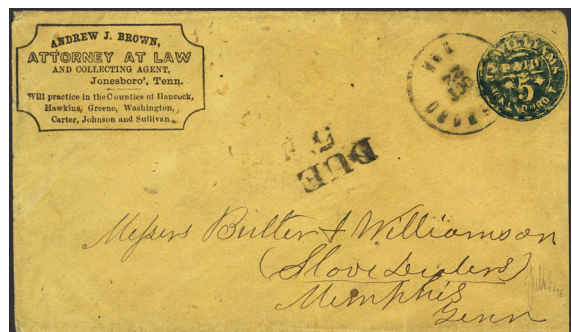 ANDREW J. BROWN,
ATTORNEY AT LAW
AND COLLECTING AGENT,
Jonesboro', Tenn.
Will practice in the Counties of Hancock,
Hawkins, Greene, Washington,
Carter, Johnson and Sullivan.
5
BORO
DUE
5
Messrs Butler & Williamson
(Slave Dealers)
Memphis
Tenn